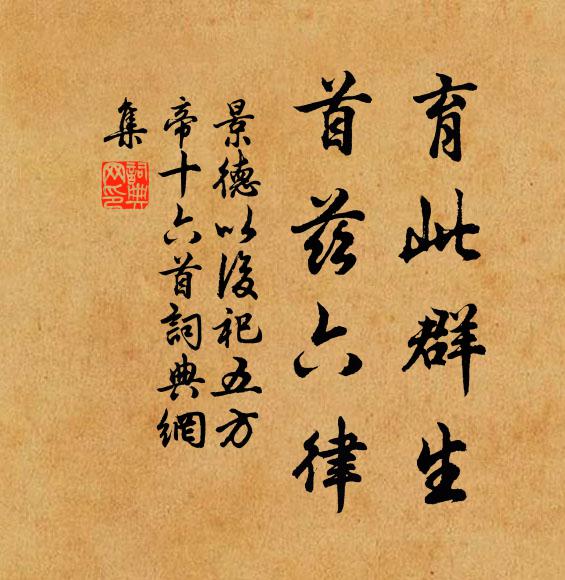 育此群生
首茲六律
景德以後祀五方
帝十六首詞典網
集
詞典
网印